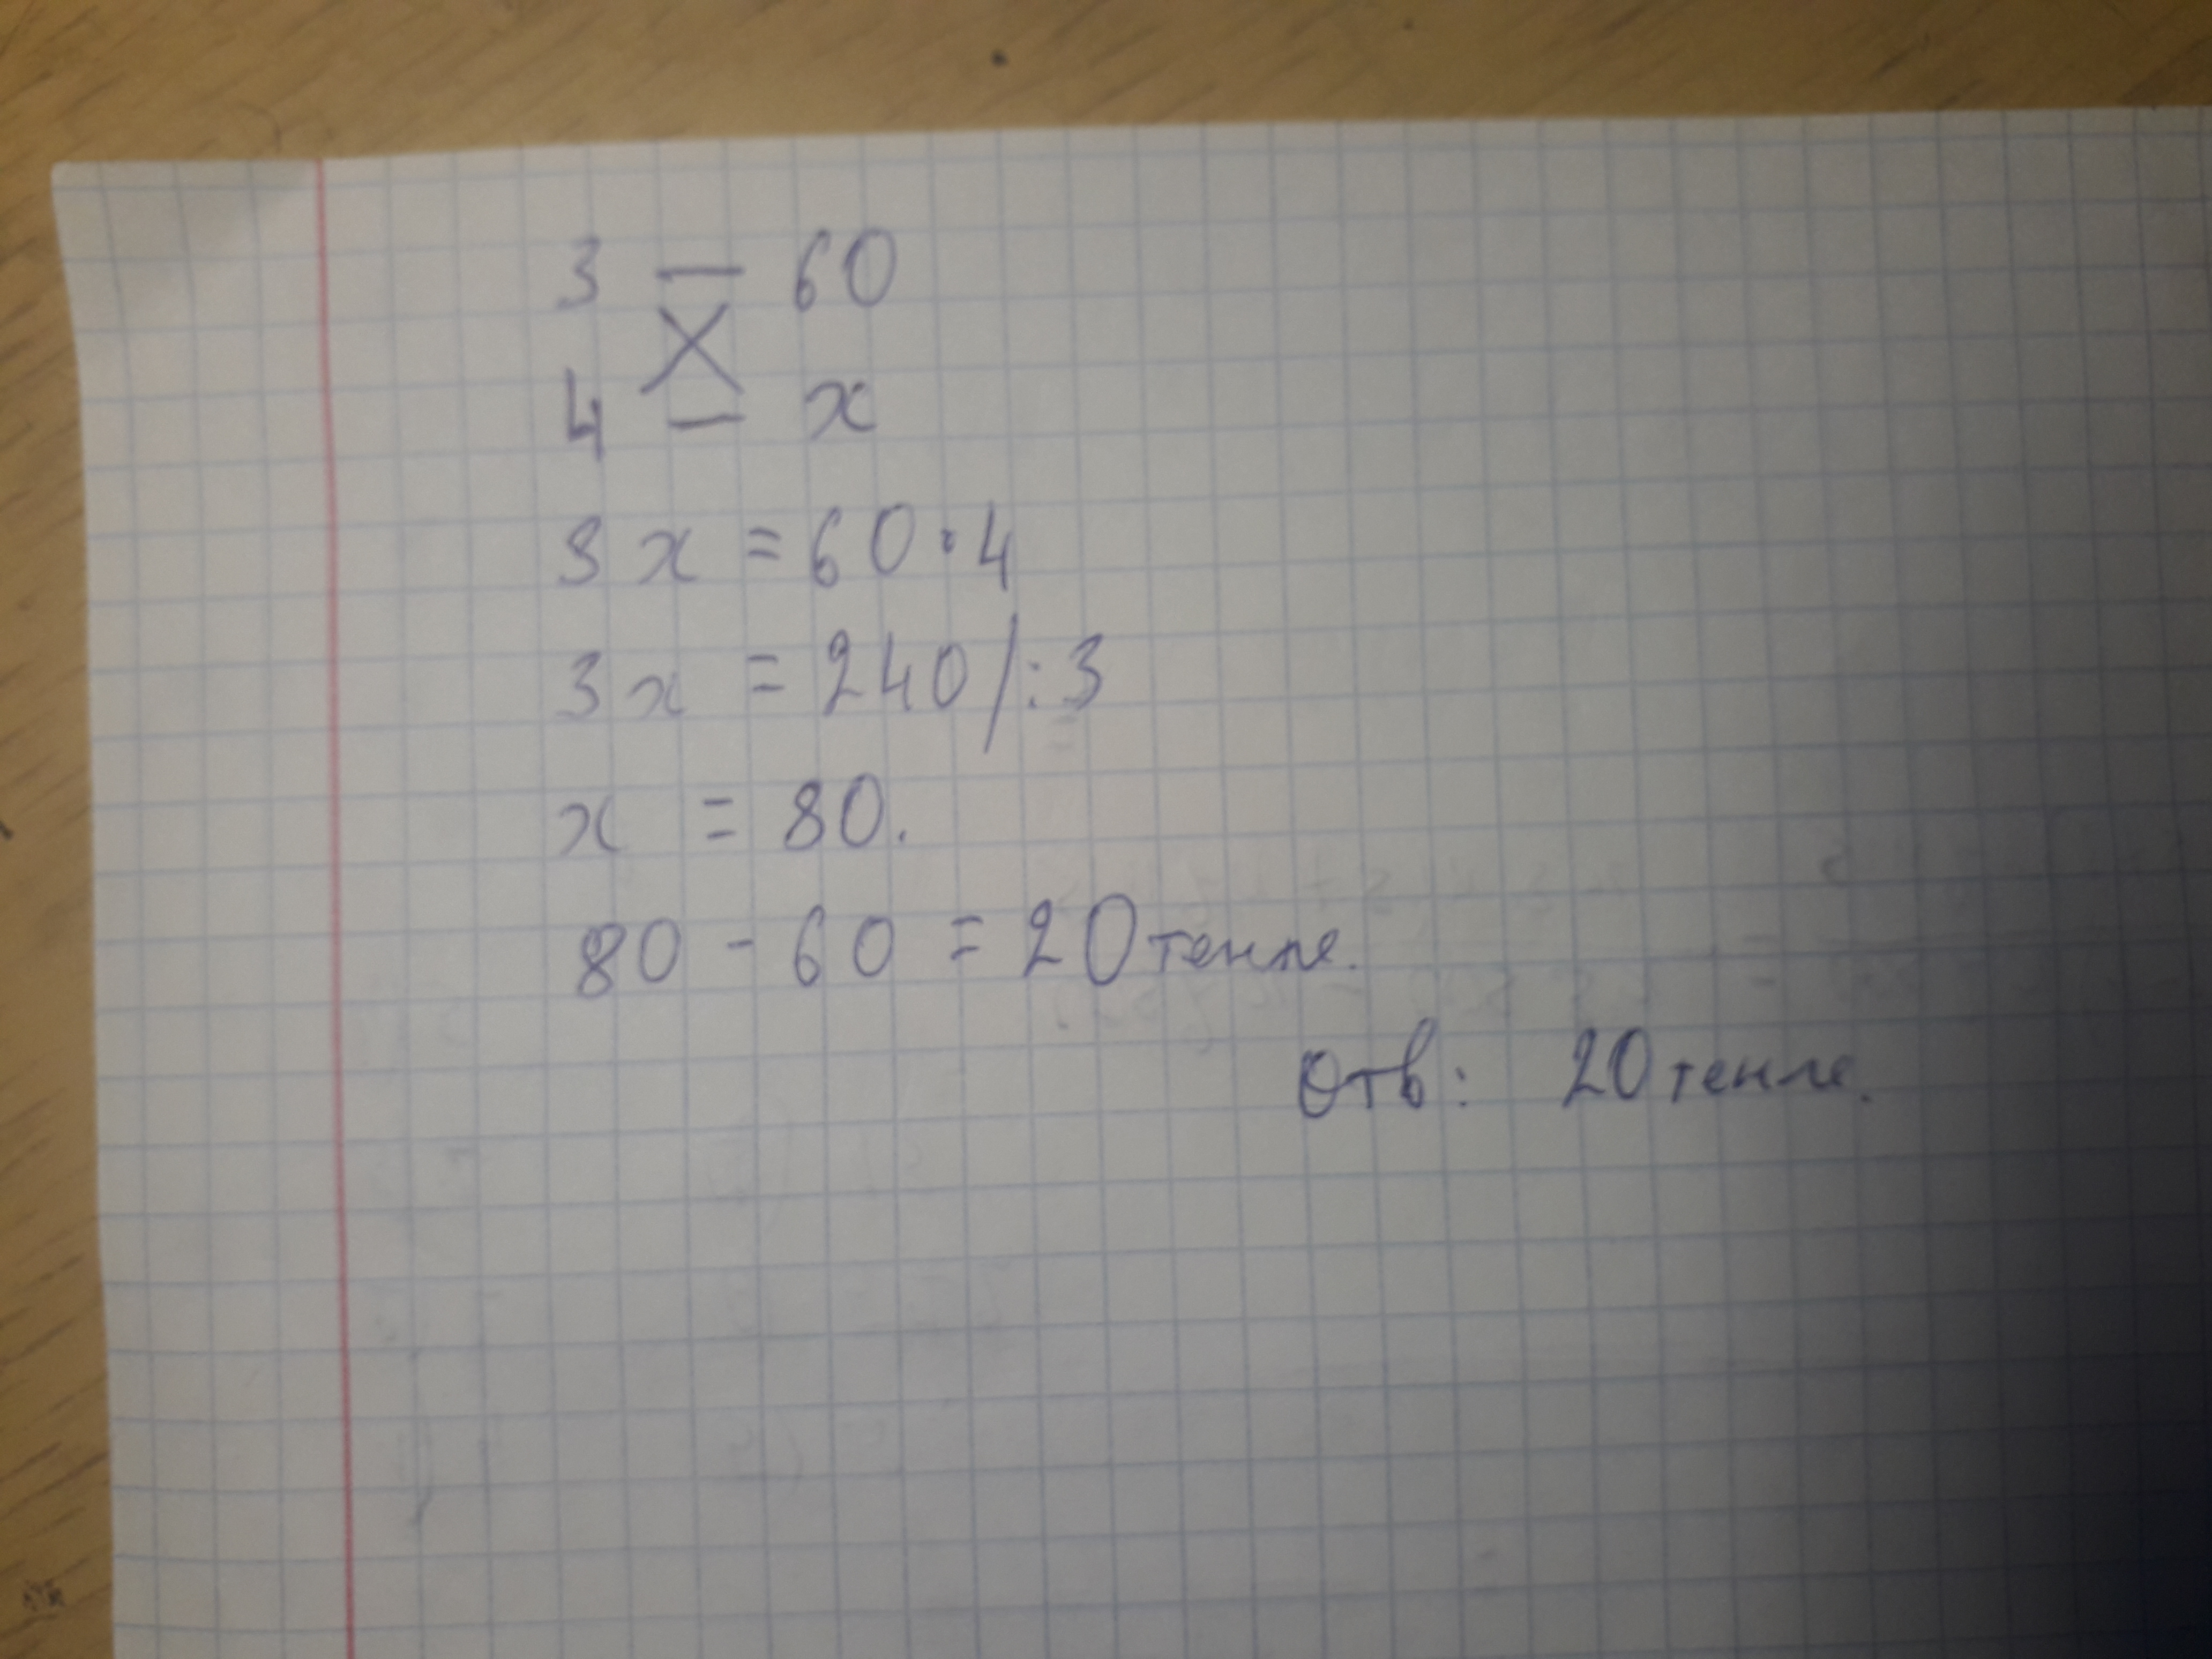 3 — 60
4 — x
3x = 60 · 4
3x = 240 / : 3
x = 80.
80 - 60 = 20 тенге.
Отв: 20 тенге.